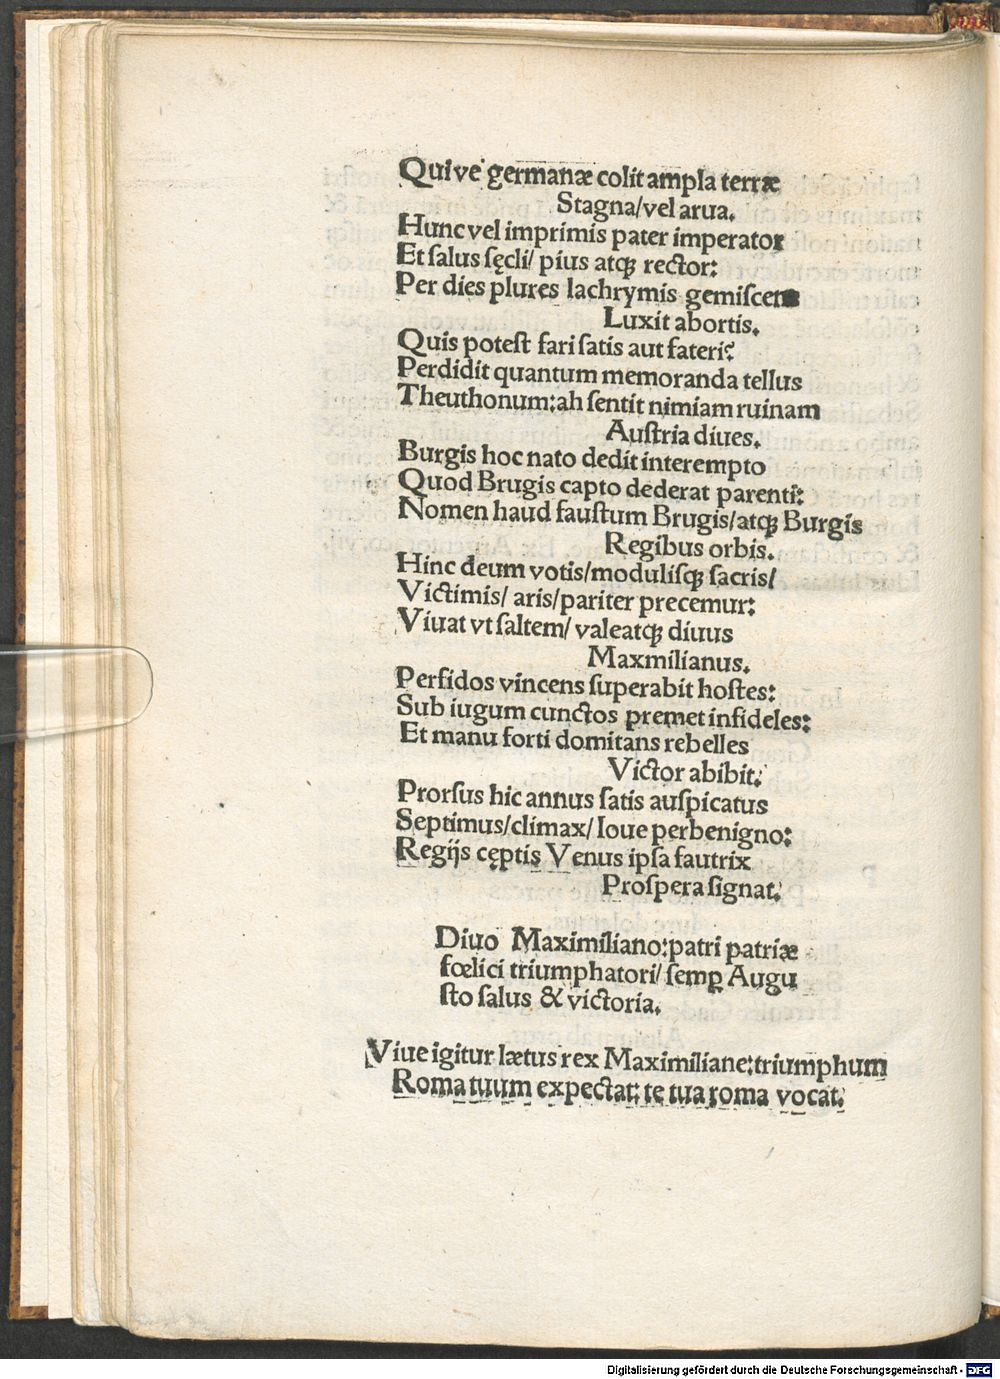 Qui ve germanæ colit ampla terræ
Stagna/vel arua.
Hunc vel imprimis pater imperator
Et ſalus ſęcli/ pius atqꝫ rector:
Per dies plures lachrymis gemiſcens
Luxit abortis.
Quis poteſt fari ſatis aut fateri?
Perdidit quantum memoranda tellus
Theuthonum: ah ſentit nimiam ruinam
Auſtria diues.
Burgis hoc nato dedit interempto
Quod Brugis capto dederat parenti:
Nomen haud fauſtum Brugis/atqꝫ Burgis
Regibus orbis.
Hinc deum votis/moduliſqꝫ ſacris/
Victimis/ aris/pariter precemur:
Viuat vt ſaltem/ valeatqꝫ diuus
Maxmilianus.
Perfidos vincens ſuperabit hoſtes:
Sub iugum cunctos premet infideles:
Et manu forti domitans rebelles
Victor abibit.
Prorſus hic annus ſatis auſpicatus
Septimus/climax/ Ioue perbenigno:
Regijs cęptis Venus ipſa fautrix
Proſpera ſignat.
Diuo Maximiliano: patri patriæ
fœlici triumphatori/ ſemꝑ Augu
ſto ſalus & victoria.
Viue igitur lætus rex Maximiliane: triumphum
Roma tuum expectat: te tua roma vocat.
Digitalisierung gefördert durch die Deutsche Forschungsgemeinschaft - DFG